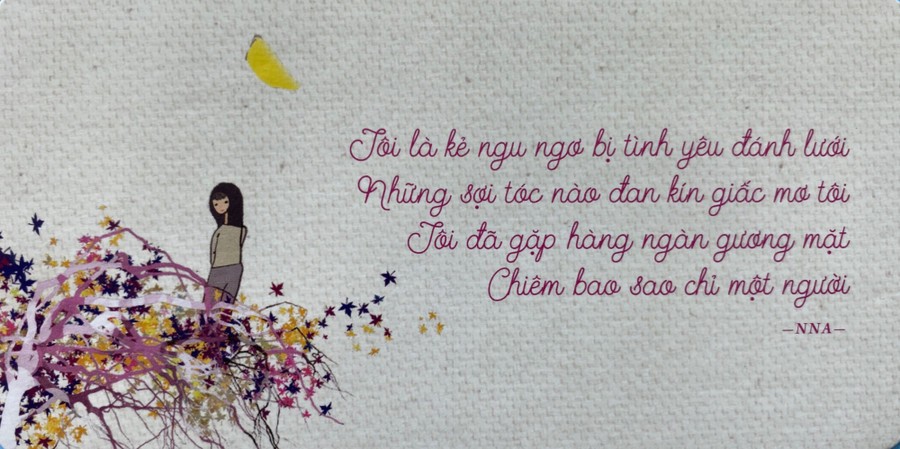 Tôi là kẻ ngu ngơ bị tình yêu đánh lưới
Những sợi tóc nào đan kín giấc mơ tôi
Tôi đã gặp hàng ngàn gương mặt
Chiêm bao sao chỉ một người
—NNA—